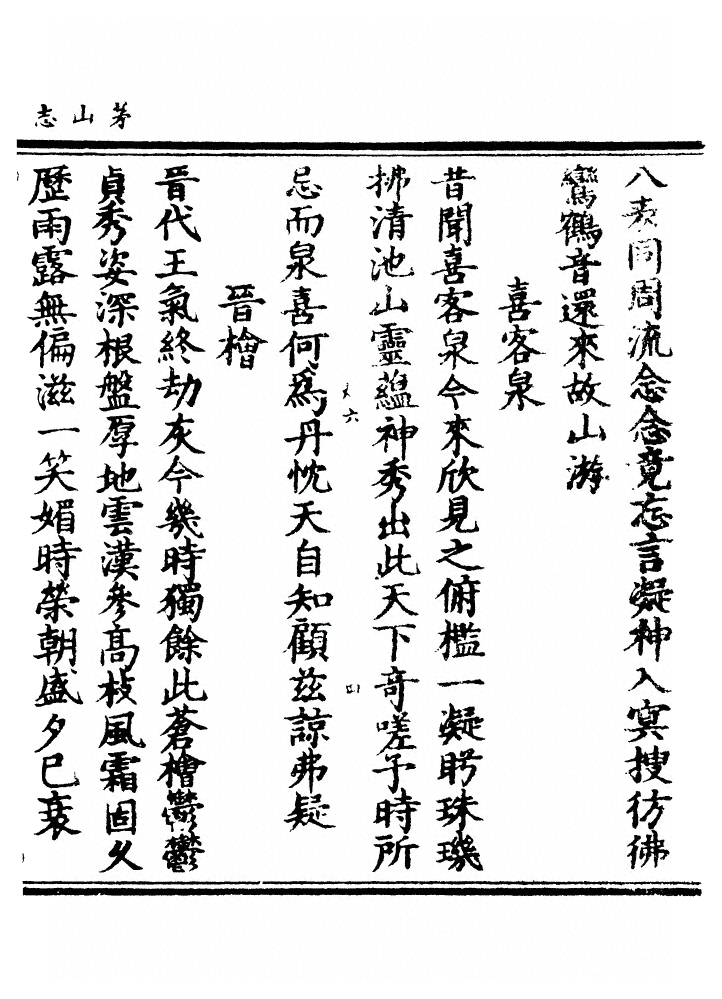 茅山志
八表同周流念念竟忘言凝神入冥搜彷彿
鸞鶴音還來故山游
喜客泉
昔聞喜客泉今來欣見之俯檻一凝眸珠璣
拂清池山靈蘊神秀出此天下奇嗟予時所
忌而泉喜何為丹忱天自知顧兹諒弗疑
晉檜
晉代王氣終劫灰今幾時獨餘此蒼檜鬱鬱
貞秀姿深根盤厚地雲漢參高枝風霜固久
歷雨露無偏滋一笑媚時榮朝盛夕已衰